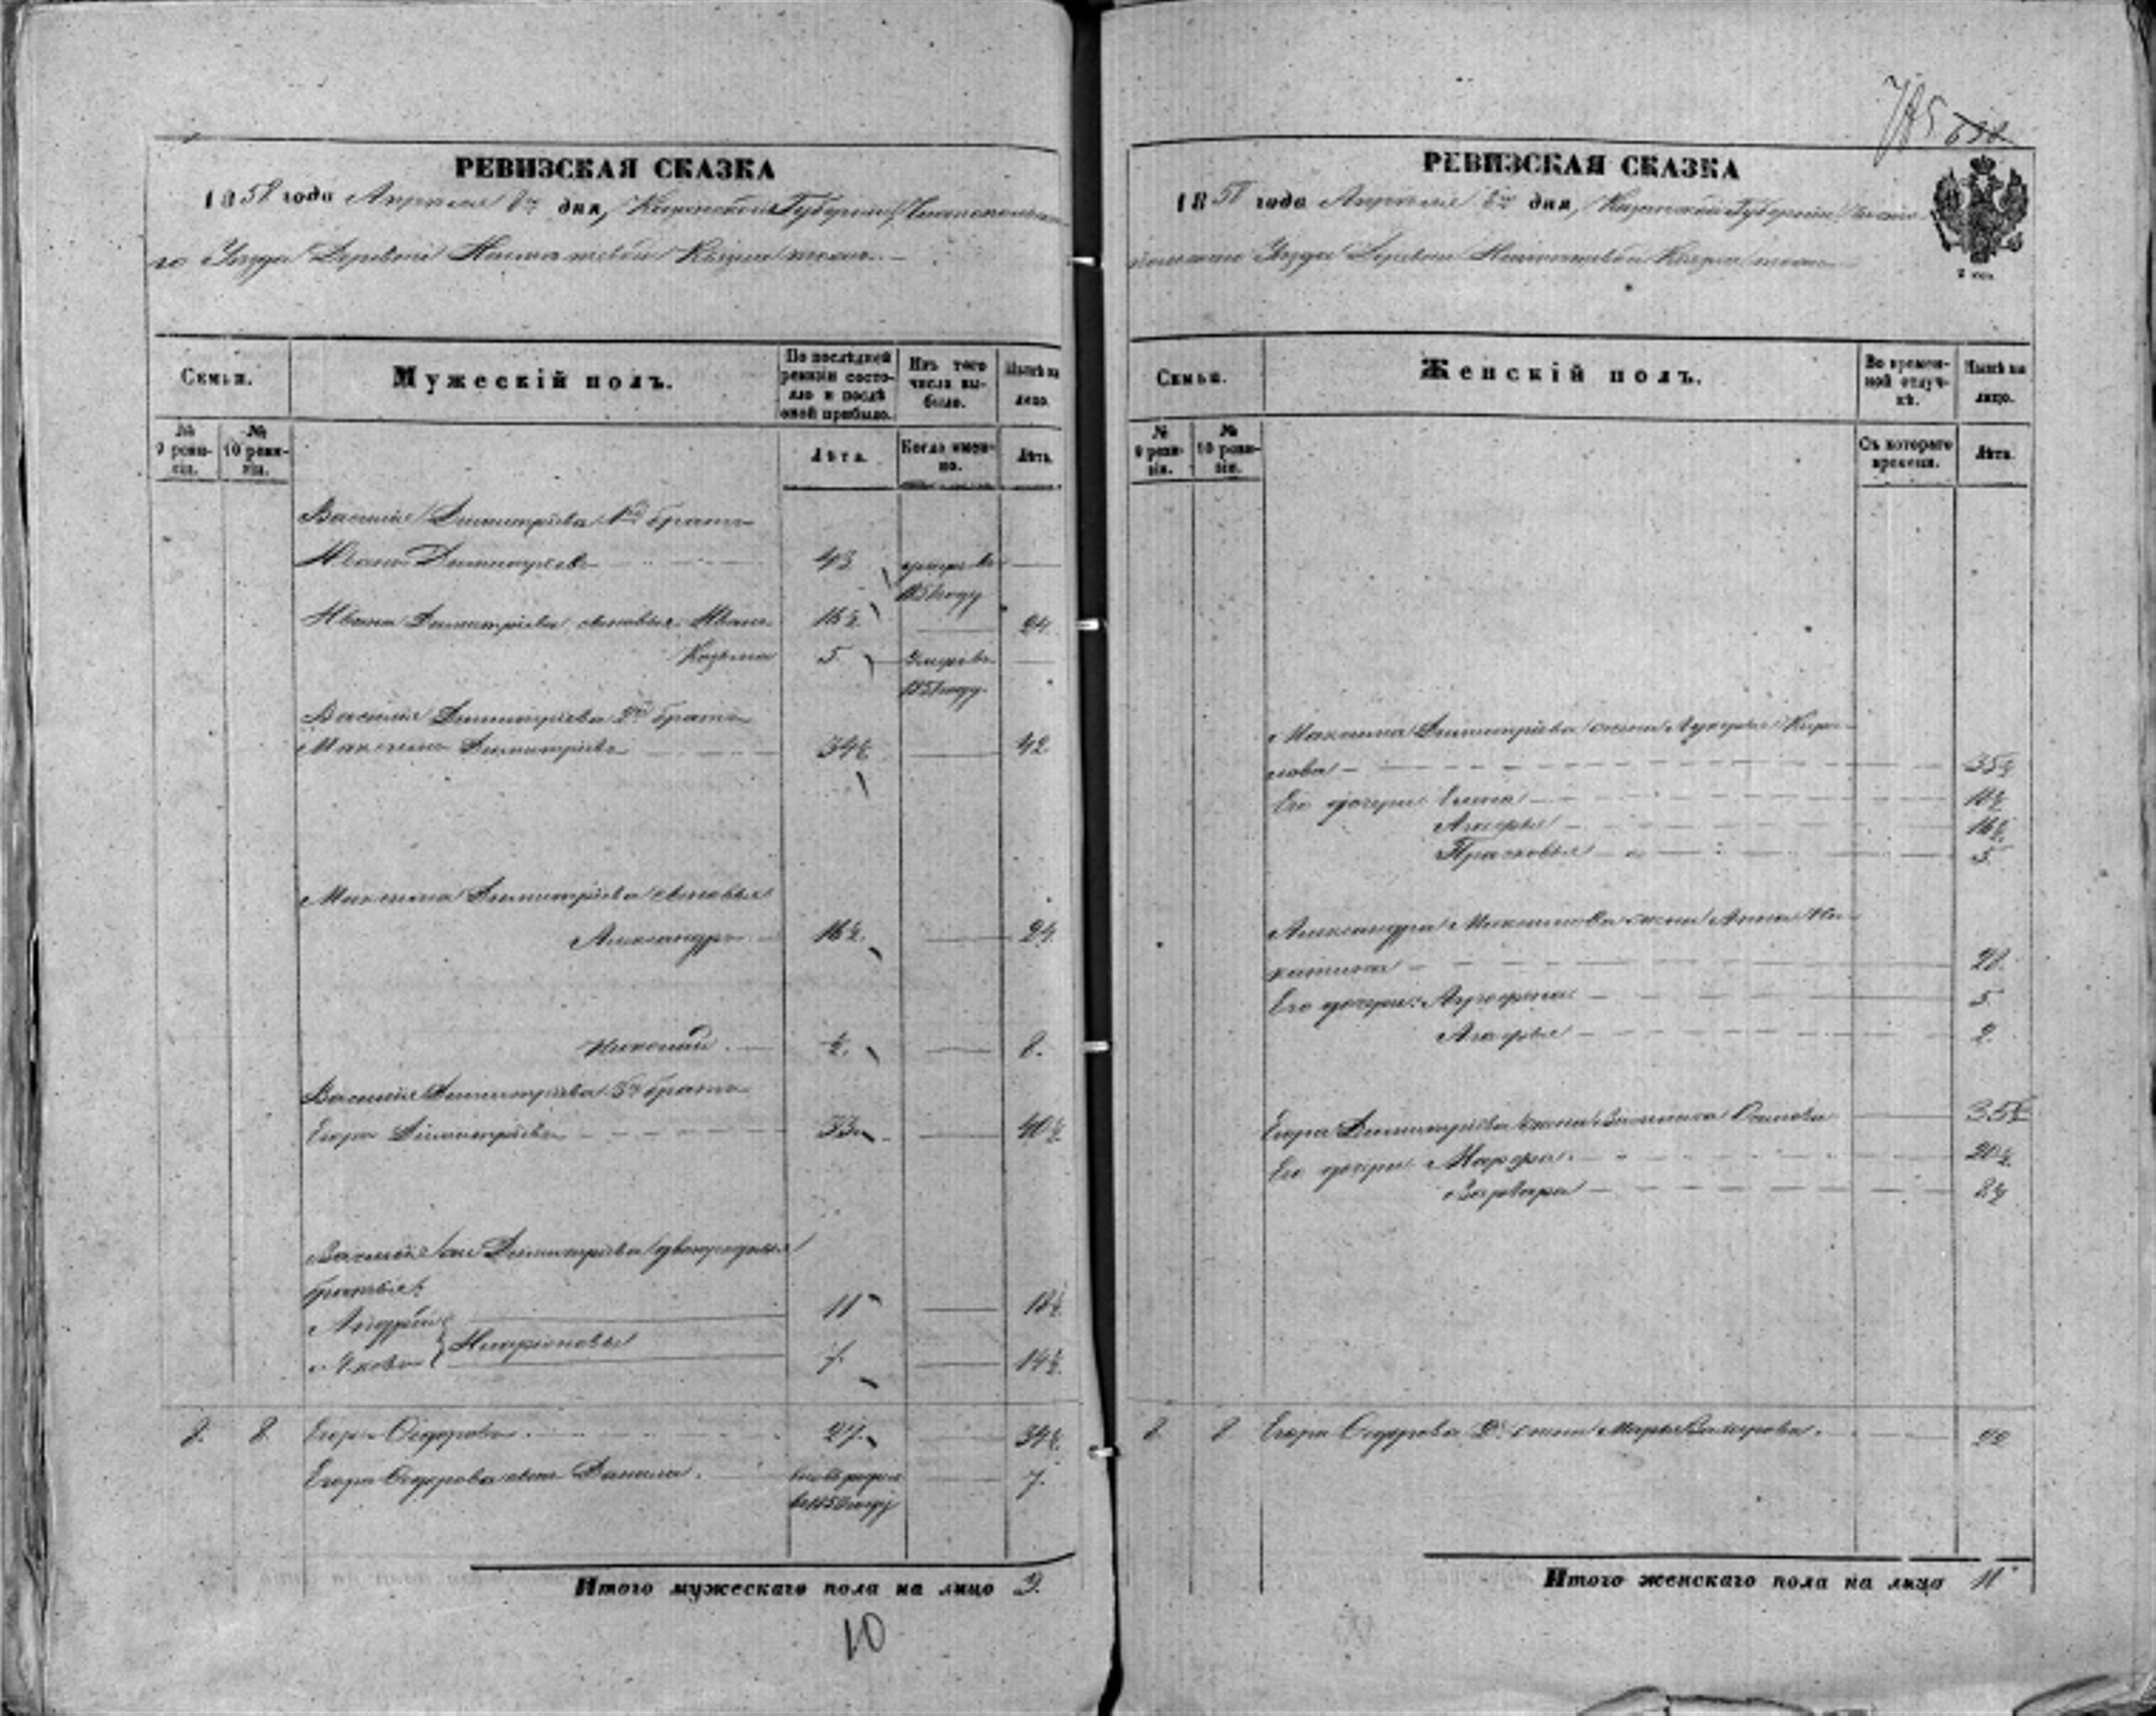 785 688
РЕВИЗСКАЯ СКАЗКА
1858 года Апреля 8го дня, Казанской Губернии Чистопольска
го Уезда Деревни
Семьи.
Мужескій полъ.
По послѣдней ревизіи состояло и послѣ оной прибыло.
Изъ того числа выбыло.
Нынѣ на лицо.
№ 9 ревизіи.
№ 10 ревизіи.
Лѣта.
Когда именно.
Лѣта.
Василія Димитріева 1й братъ
Иванъ Димитріевъ 43 умеръ въ
185 году
Ивана Димитріева сыновья Иванъ 16½ 24
Козьма 5 Умеръ въ
1851 году
Василія Димитріева 2й братъ
Максимъ Димитріевъ 34½ 42
Максима Димитріева сыновья
Александръ 16½ 24
Николай ½ 8.
Василія Димитріева 3й братъ
Егоръ Димитріевъ 33 40½
Василія Димитріева двоюродныя
братья:
Андрей 11 18½
Яковъ Иларіоновы 7 14½
8. 8. Егоръ Ѳедоровъ 27 34½
Егора Ѳедорова сынъ Данила 7.
въ 1850 году
Итого мужескаго пола на лицо 9.
10
РЕВИЗСКАЯ СКАЗКА
1858 года Апреля 8го дня, Казанской Губерніи Чисто
польскаго Уезда Деревни
2 коп.
Семьи.
Женскій полъ.
Во временной отлучкѣ.
Нынѣ на лицо.
№ 9 ревизіи.
№ 10 ревизіи.
Съ котораго времени.
Лѣта.
Максима Димитріева жена Лукерья Кири
лова 35½
Его дочери: Елена 18½
Агафья 16½
Прасковья 5
Александра Максимова жена Анна Ни
китина 28.
Его дочери: Аграфена 5
Агафья 2.
Егора Димитріева жена Осипова 35½
Его дочери Марфа 20½
Варвара 8½
8 8 Егора Ѳедорова 2я жена Марья 22
Итого женскаго пола на лицо 11